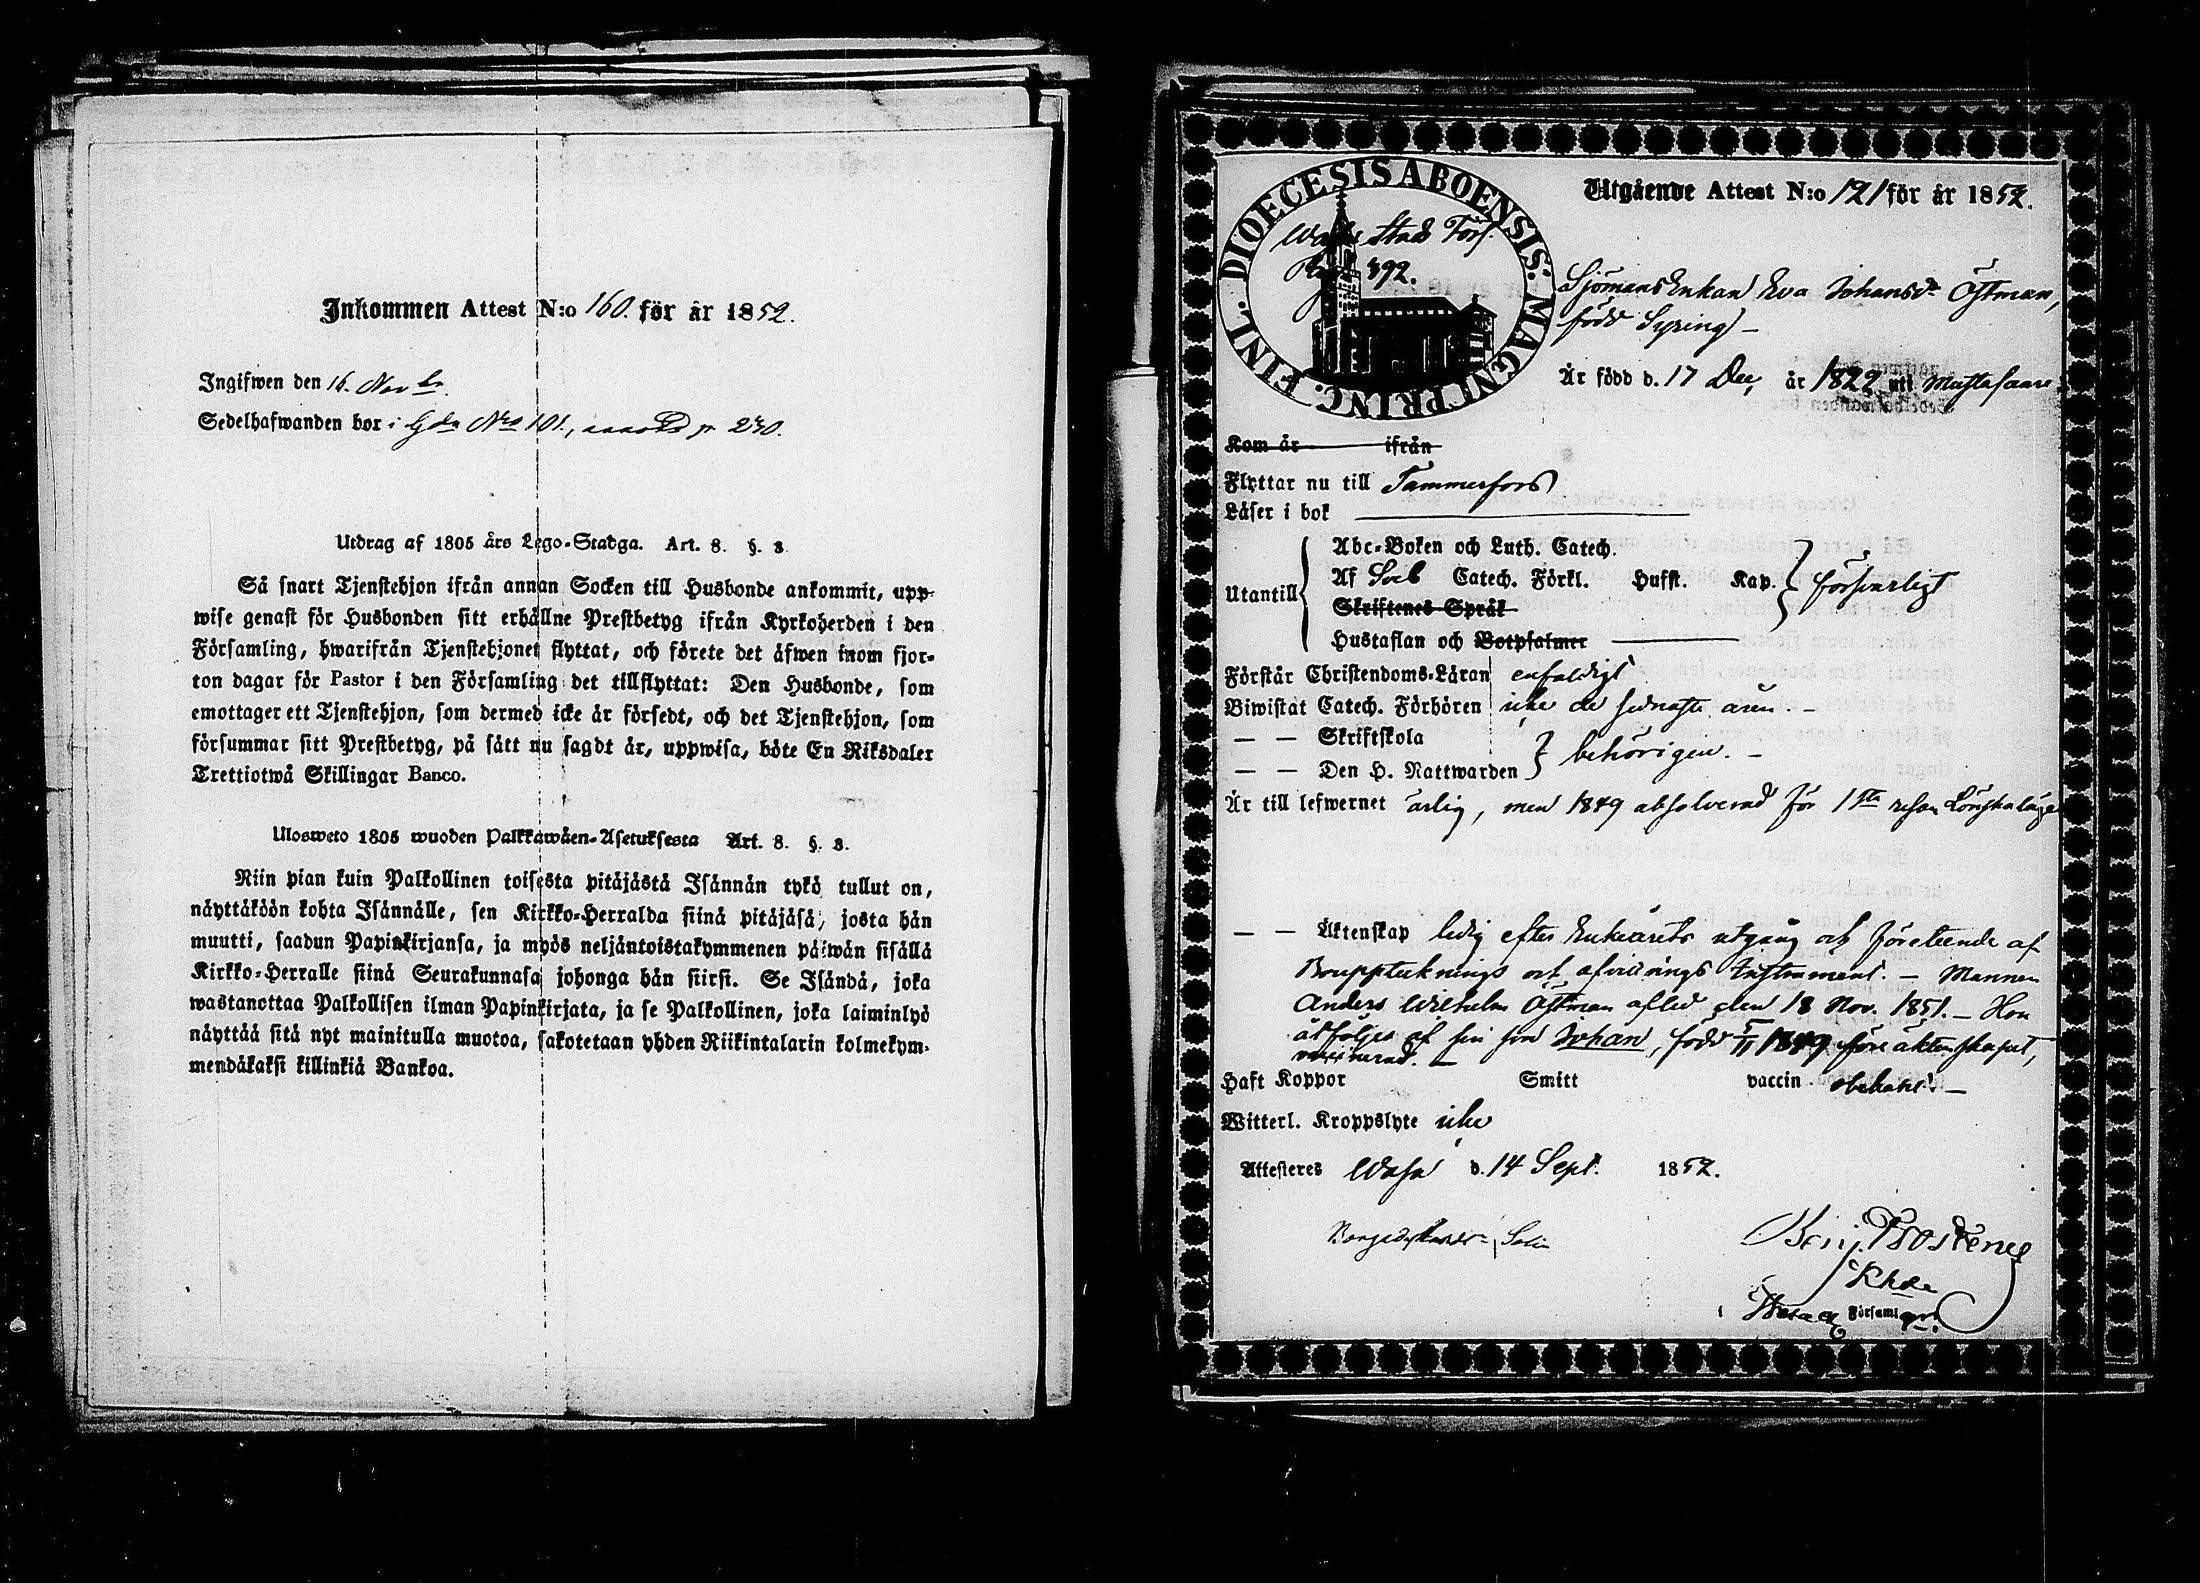 Inkommen Attest N:o 160. för år 1852.
Ingifwen den 16. Novbr.
Sedelhafwanden bor i Gdn Nro 101, p 230.
Utdrag af 1805 års Lego-Stadga. Art. 8. §. 3.
Så snart Tjenstehjon ifrån annan Socken till Husbonde ankommit, upp-
wise genast för Husbonden sitt erhållne Prestbetyg ifrån Kyrkoherden i den
Församling, hwarifrån Tjenstehjonet flyttat, och förete det äfwen inom fjor-
ton dagar för Pastor i den Församling det tillflyttat: Den Husbonde, som
emottager ett Tjenstehjon, som dermed icke är försedt, och det Tjenstehjon, som
försummar sitt Prestbetyg, på sätt nu sagdt är, uppwisa, böte En Riksdaler
Trettiotwå Skillingar Banco.
Ulosweto 1805 wuoden Palkkawäen-Asetuksesta Art. 8. §. 3.
Niin pian kuin Palkollinen toisesta pitäjästä Isännän tykö tullut on,
näyttäköön kohta Isännälle, sen Kirkko-Herralda siinä pitäjäsä, josta hän
muutti, saadun Papinkirjansa, ja myös neljäntoistakymmenen päiwän sisällä
Kirkko-Herralle siinä Seurakunnasa johonga hän siirsi. Se Isändä, joka
wastanottaa Palkollisen ilman Papinkirjata, ja se Palkollinen, joka laiminlyö
näyttää sitä nyt mainitulla muotoa, sakotetaan yhden Riikintalarin kolmekym-
mendäkaksi killinkiä Bankoa.
DIOECESIS ABOENSIS: MAGNI PRINC. FINL.
Utgående Attest N:o 121 för år 1852.
Wasa Stads Förs.
392.
SjömansEnkan Eva Johansdr Östman,
född Syring –
Är född d. 17 Dec, år 1822 uti Mustasaari
Kom år ifrån
Flyttar nu till Tammerfors
Läser i bok
Utantill
Abc-Boken och Luth. Catech.
Af Sveb Catech. Förkl. Husst. Kap. försvarligt
Skriftenes Språk
Hustaflan och Botpsalmer
Förstår Christendoms-Läran enfaldigt
Biwistat Catech. Förhören icke de sednaste åren. –
— — Skriftskola
— — Den H. Nattwarden behörigen. –
Är till lefwernet ärlig, men 1849 absolverad för 1sta resan Lönskaläge
— — Äktenskap ledig efter Enkeårets utgång och företeende af
Boupptecknings och afvittrings Instrument. – Mannen
Anders Wilhelm Östman afled den 18 Nov. 1851. – Hon
åtföljes af sin son Johan, född 1849 före äktenskapet,
vaccinerad. –
Haft Koppor Smitt vaccin obekant. –
Witterl. Kroppslyte icke
Attesteres Wasa d. 14 Sept. 1852.
Benj. Frosterus
Khde
i Församl